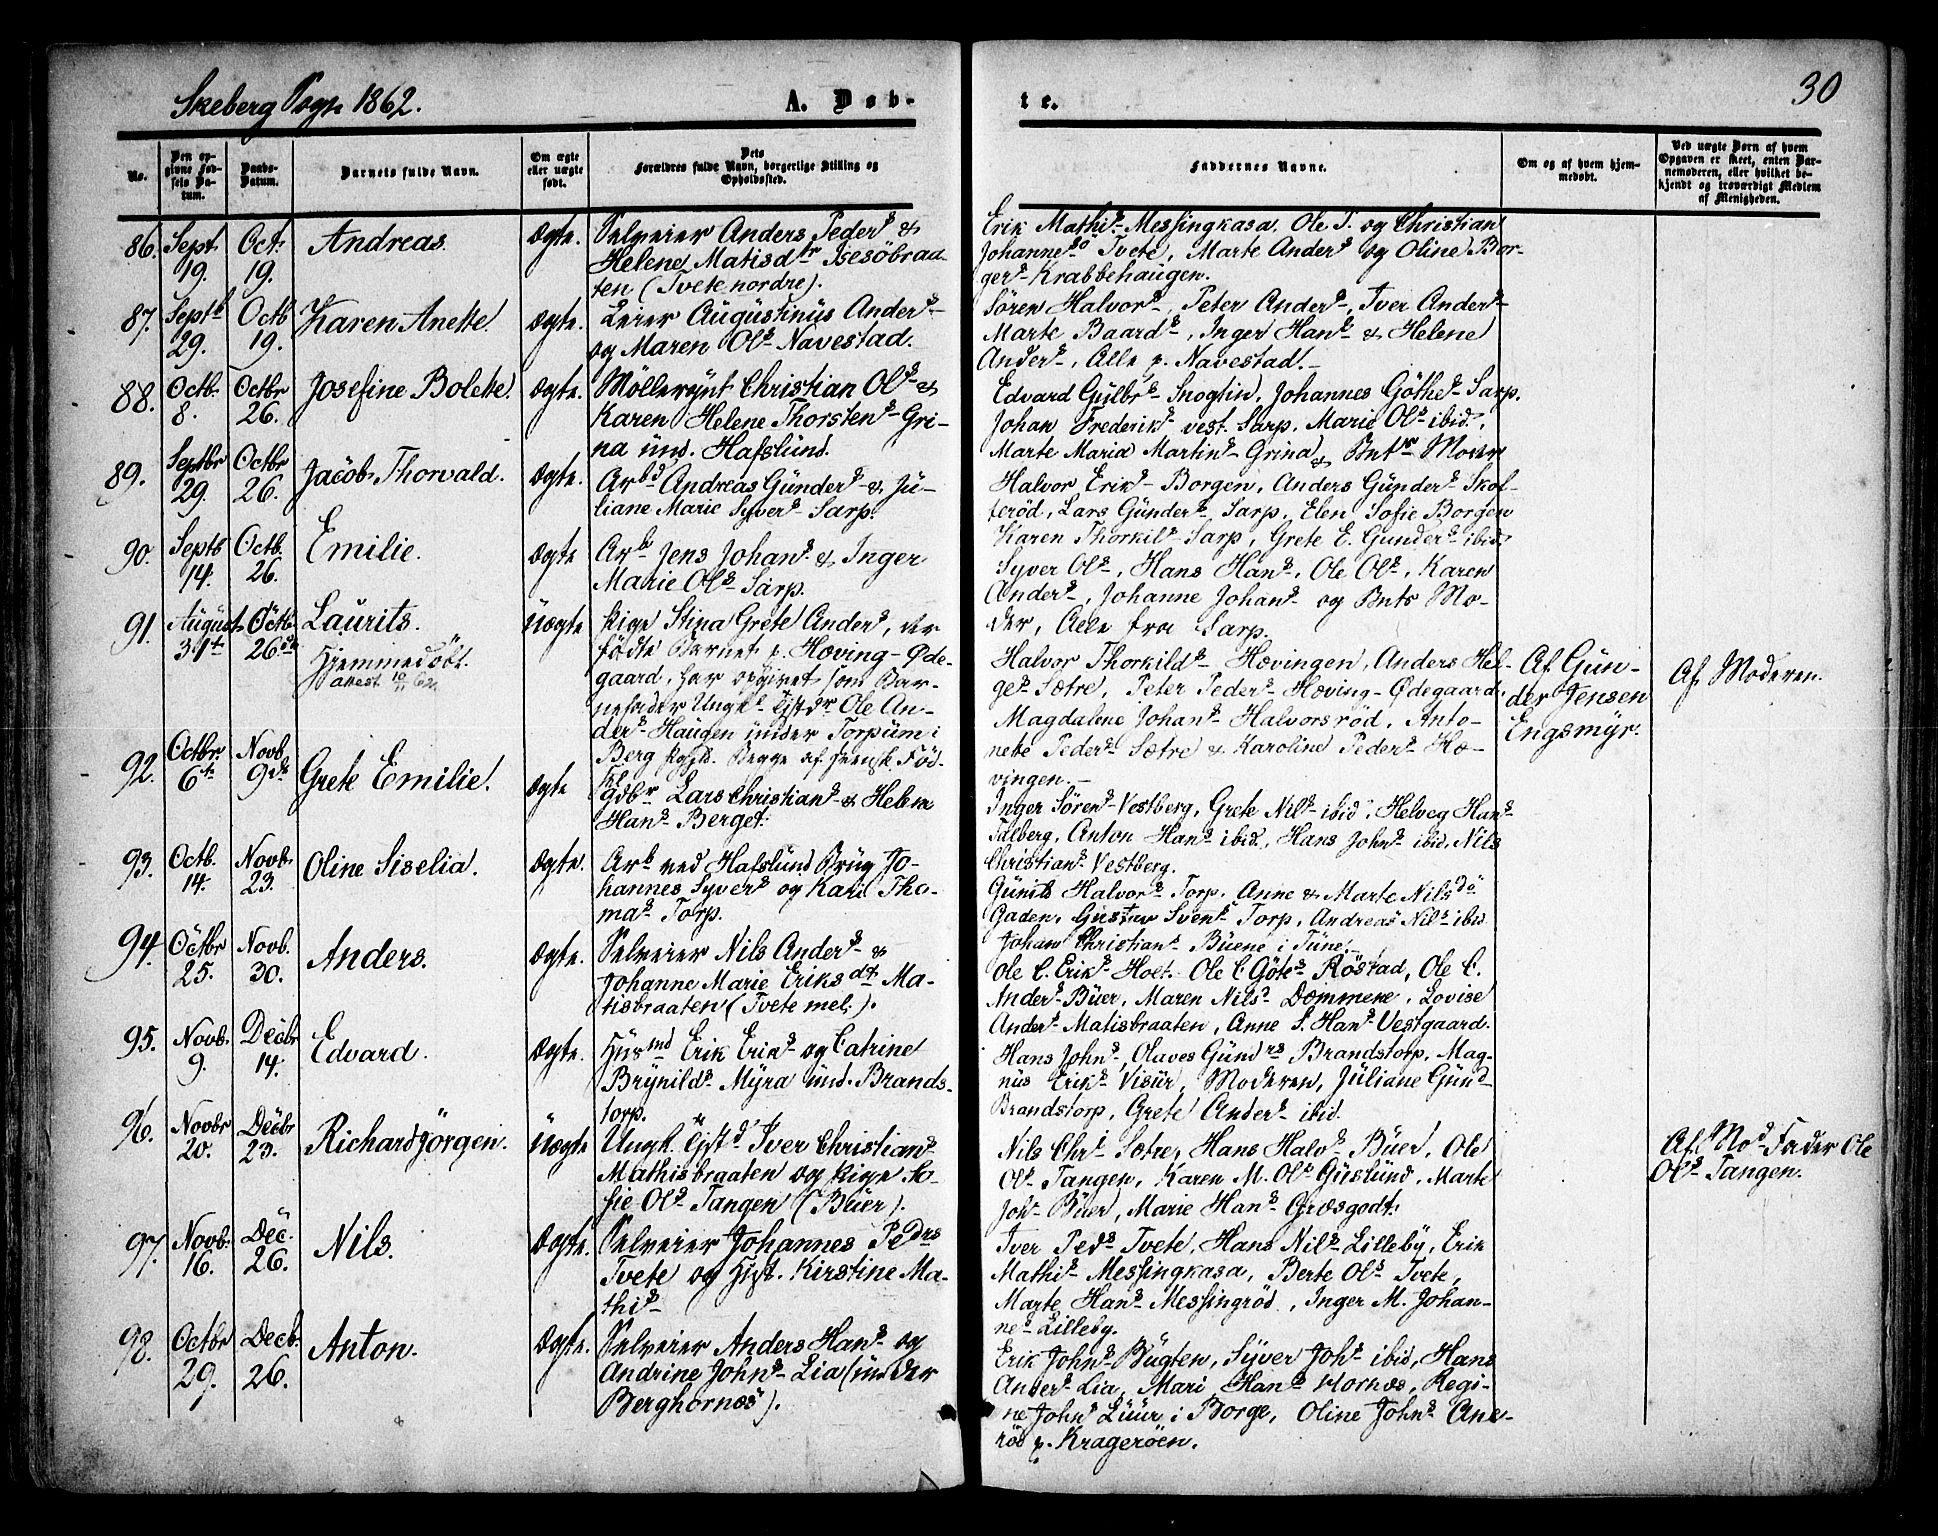 Skeberg Sogn 1862.
A. Døbte.
30
No.
Den opgivne Fødsels Datum.
Daabs-Datum.
Barnets fulde Navn.
Om ægte eller uægte født.
Dets Forældres fulde Navn, borgerlige Stilling og Opholdssted.
Faddernes Navne.
Om og af hvem hjemmedøbt.
Ved uægte Børn af hvem Opgaven er skeet, enten Barnemoderen, eller hvilket bekjendt og troværdigt Medlem af Menigheden.
86. Sept. 19. Oct. 19. Andreas. Ægte.
Selveier Anders Peders &
Helene Matisdtr Isesöbraa-
ten (Tvete nordre).
Erik Mathis- Messingkasa, Ole T. og Christian
Johannesdo Tvete, Marte Anders og Oline Bor-
gers- Krabbehaugen.
87. Septb 29. Octb 19. Karen Anette. Ægte.
Leier Augustinus Anders-
og Maren Ols Navestad.
Sören Halvors-, Peter Anders-, Iver Anders-
Marte Baards-, Inger Hans- & Helene
Anders-, Alle p. Navestad.-
88. Octb. 8. Octbr 26. Josefine Bolette. Ægte.
Möllersvnt Christian Ols- &
Karen Helene Thorstens- Gri-
na und. Hafslund.
Edvard Gulbrs- Snogtin, Johannes Göthes- Sarp,
Johan Frederiks vest. Sarp, Marie Ols ibid.,
Marte Maria Martins- Grina & Bntr Moder
89. Septbr 29. Octbr 26. Jacob Thorvald. Ægte.
Arbd Andreas Gunders- & Ju-
liane Marie Syvers- Sarp.
Halvor Eriks- Borgen, Anders Gunders- Skol-
teröd, Lars Gunders- Sarp, Elen Sofie Borgen
Karen Thorkils- Sarp, Grete E. Gunders- ibid.
90. Septb 14. Octb. 26. Emilie. Ægte
Arb Jens Johans- & Inger
Marie Ols- Sarp.
Syver Ols-, Hans Hans-, Ole Ols-, Karen
Anders-, Johanne Johans- og Bnts Mo-
der, Alle fra Sarp.
91. August 31te Octb. 26de Laurits. Uægte
Hjemmedöbt.
attest 10/11 62.
Pige Stina Grete Anders, der
födte Barnet p. Hæving-Øde-
gaard, har opgivet som Bar-
nefader Ungk. Tjstdr Ole An-
ders- Haugen under Torpum i
Berg Pgjld. Begge af svensk Föd-
Halvor Thorkilds- Hævingen, Anders Hel-
ges- Sætre, Peter Peders- Hæving-Ødegaard,
Magdalene Johans- Halvorsröd, Anto-
nette Peders- Sætre & Karoline Peders- Hæ-
vingen.-
Af Gun-
der Jensen
Engsmyr.
Af Moderen.
92. Octbr. 6te Novb. 9de Grete Emilie. Ægte
Gdbr Lars Christians- & Helene
Hans- Berget.
Inger Sörens- Vestberg, Grete Nils- ibid, Helveg Hans-
Talberg, Anton Hans- ibid., Hans Johns- ibid, Nils
Christians- Vestberg.
93. Octb. 14. Novb. 23. Oline Siselia. Ægte.
Arb ved Hafslund Brug Jo-
hannes Syvers- og Kari Tho-
mas- Torp.
Gunild Halvors- Torp, Anne & Marte Nilsdo
Gaden, Gustav Svens- Torp, Andreas Nils- ibid
Johan Christians- Buene i Tune.-
94. Octbr 25. Novb. 30. Anders. Ægte.
Selveier Nils Anders- &
Johanne Marie Eriksdt. Ma-
tisbraaten (Tvete mel.).
Ole C. Eriks- Holt. Ole C. Götes- Röstad, Ole C.
Anders- Buer, Maren Nils- Dommene, Lovise
Anders- Matisbraaten, Anne S. Hans- Vestgaard.
95. Novb. 9. Decbr 14. Edvard. Ægte.
Husmd Erik Eriks- og Catrine
Brynilds- Myra und. Brands-
torp.
Hans Johns-, Olaves Gundrs Brandstorp, Mag-
nus Eriks- Visur, Moderen, Juliane Gunds-
Brandstorp, Grete Anders- ibid.
96. Novbr 20. Decbr 23. Richard Jörgen. Uægte
Ungk. Tjstd. Iver Christians-
Mathisbraaten og Pige So-
fie Ols- Tangen (Buer).
Nils Chrs- Sætre, Hans Halvs- Buer, Ole
Ols- Tangen, Karen M. Ols Guslund, Marte
Johs- Buer, Marie Hans- Græsgodt.
Af Mods- Fader Ole
Ols- Tangen.
97. Novb. 16. Dec. 26. Nils. Ægte.
Selveier Johannes Pedrs
Tvete og Hust. Kirstine Ma-
this-
Iver Peds Tvete, Hans Nils- Lilleby, Erik
Mathis- Messingkasa, Berte Ols- Tvete,
Marte Hans- Messingröd, Inger M. Johan-
nes- Lilleby.
98. Octbr 29. Decb. 26. Anton. Ægte.
Selveier Anders Hans- og
Andrine Johns- Lia (under
Berghornæs).
Erik Johns- Bugten, Syver Johs- ibid, Hans
Anders- Lia, Mari Hans- Hornæs, Regi-
ne Johns Luur i Borge, Oline Johns- Ane-
röd p. Krageröen.